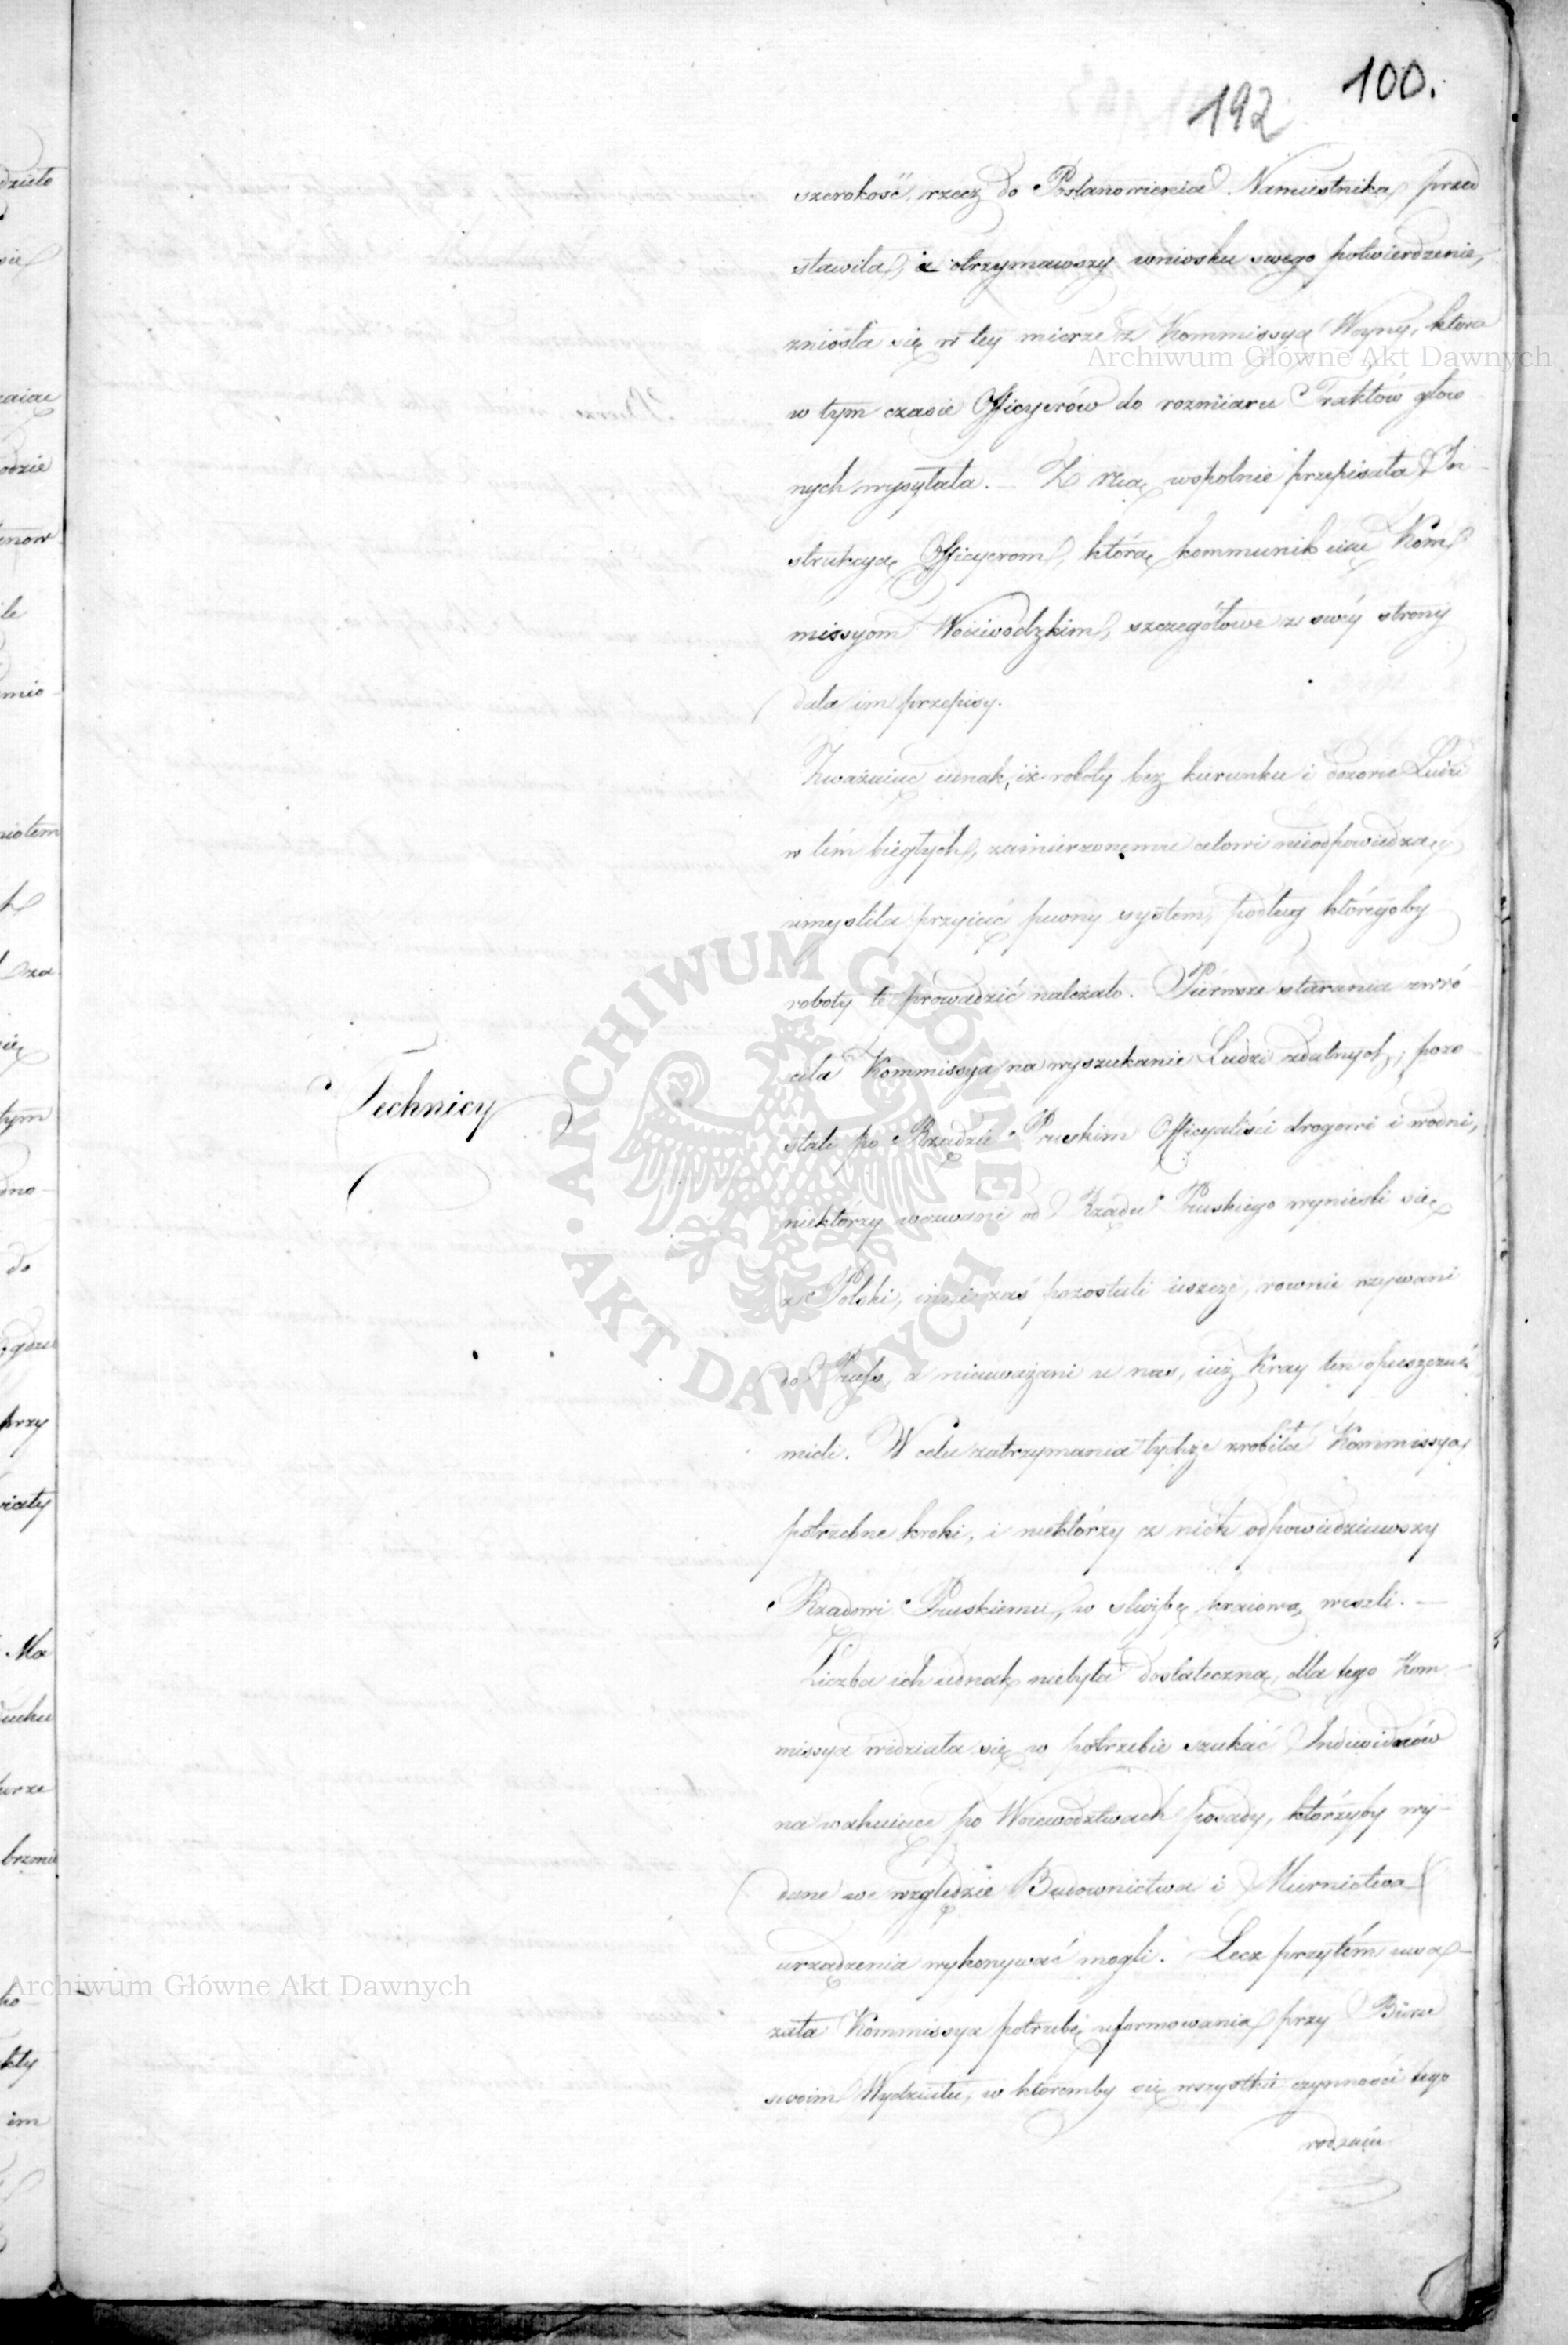 100.
192
szerokość, rzecz do Postanowienia Namiestnika przed
stawiła, a otrzymawszy wniosku swego potwierdzenie,
zniosła się w tey mierze z Kommissyą Woyny, która
w tym czasie Officyerów do rozmiaru Traktów głow
nych wysyłała. — Z Nią wspolnie przepisała In
strukcyą Officyerom, którą kommunikuiąc Kom
missyom Woiewodzkim, szczegółowe z swéy strony
dała im przepisy.
Zważaiąc iednak, iż roboty bez kierunku i dozoru Ludzi
w tém biegłych, zamierzonemu celowi nieodpowiedzą,
umyśliła przyiąć pewny system, podług któregoby
roboty te prowadzić należało. Pierwsze starania zwró
ciła Kommissya na wyszukanie Ludzi zdatnych; pozo
Technicy
stali po Rządzie Pruskim Officyaliści drogowi i wodni,
niektórzy wezwani od Rządu Pruskiego wynieśli się
z Polski, inni zaś pozostali ieszcze, rownie wzywani
do Pruss, a nieuważani u nas, iuż Kray ten opuszczać
mieli. W celu zatrzymania tychże zrobiła Kommissya
potrzebne kroki, i niektórzy z nich odpowiedziawszy
Rządowi Pruskiemu, w służbę kraiową weszli. —
Liczba ich iednak niebyła dostateczną, dla tego Kom
missya widziała się w potrzebie szukać Indiwiduów
na wakuiące po Woiewodztwach posady, którzyby wy-
dane we względzie Budownictwa i Miernictwa
urządzenia wykonywać mogli. Lecz przytém uwa-
żała Kommissya potrzebę uformowania przy Biurze
swoim Wydziału, w któremby się wszystkie czynności tego
rodzaiu
Archiwum Główne Akt Dawnych
ARCHIWUM GŁÓWNE AKT DAWNYCH
Archiwum Główne Akt Dawnych